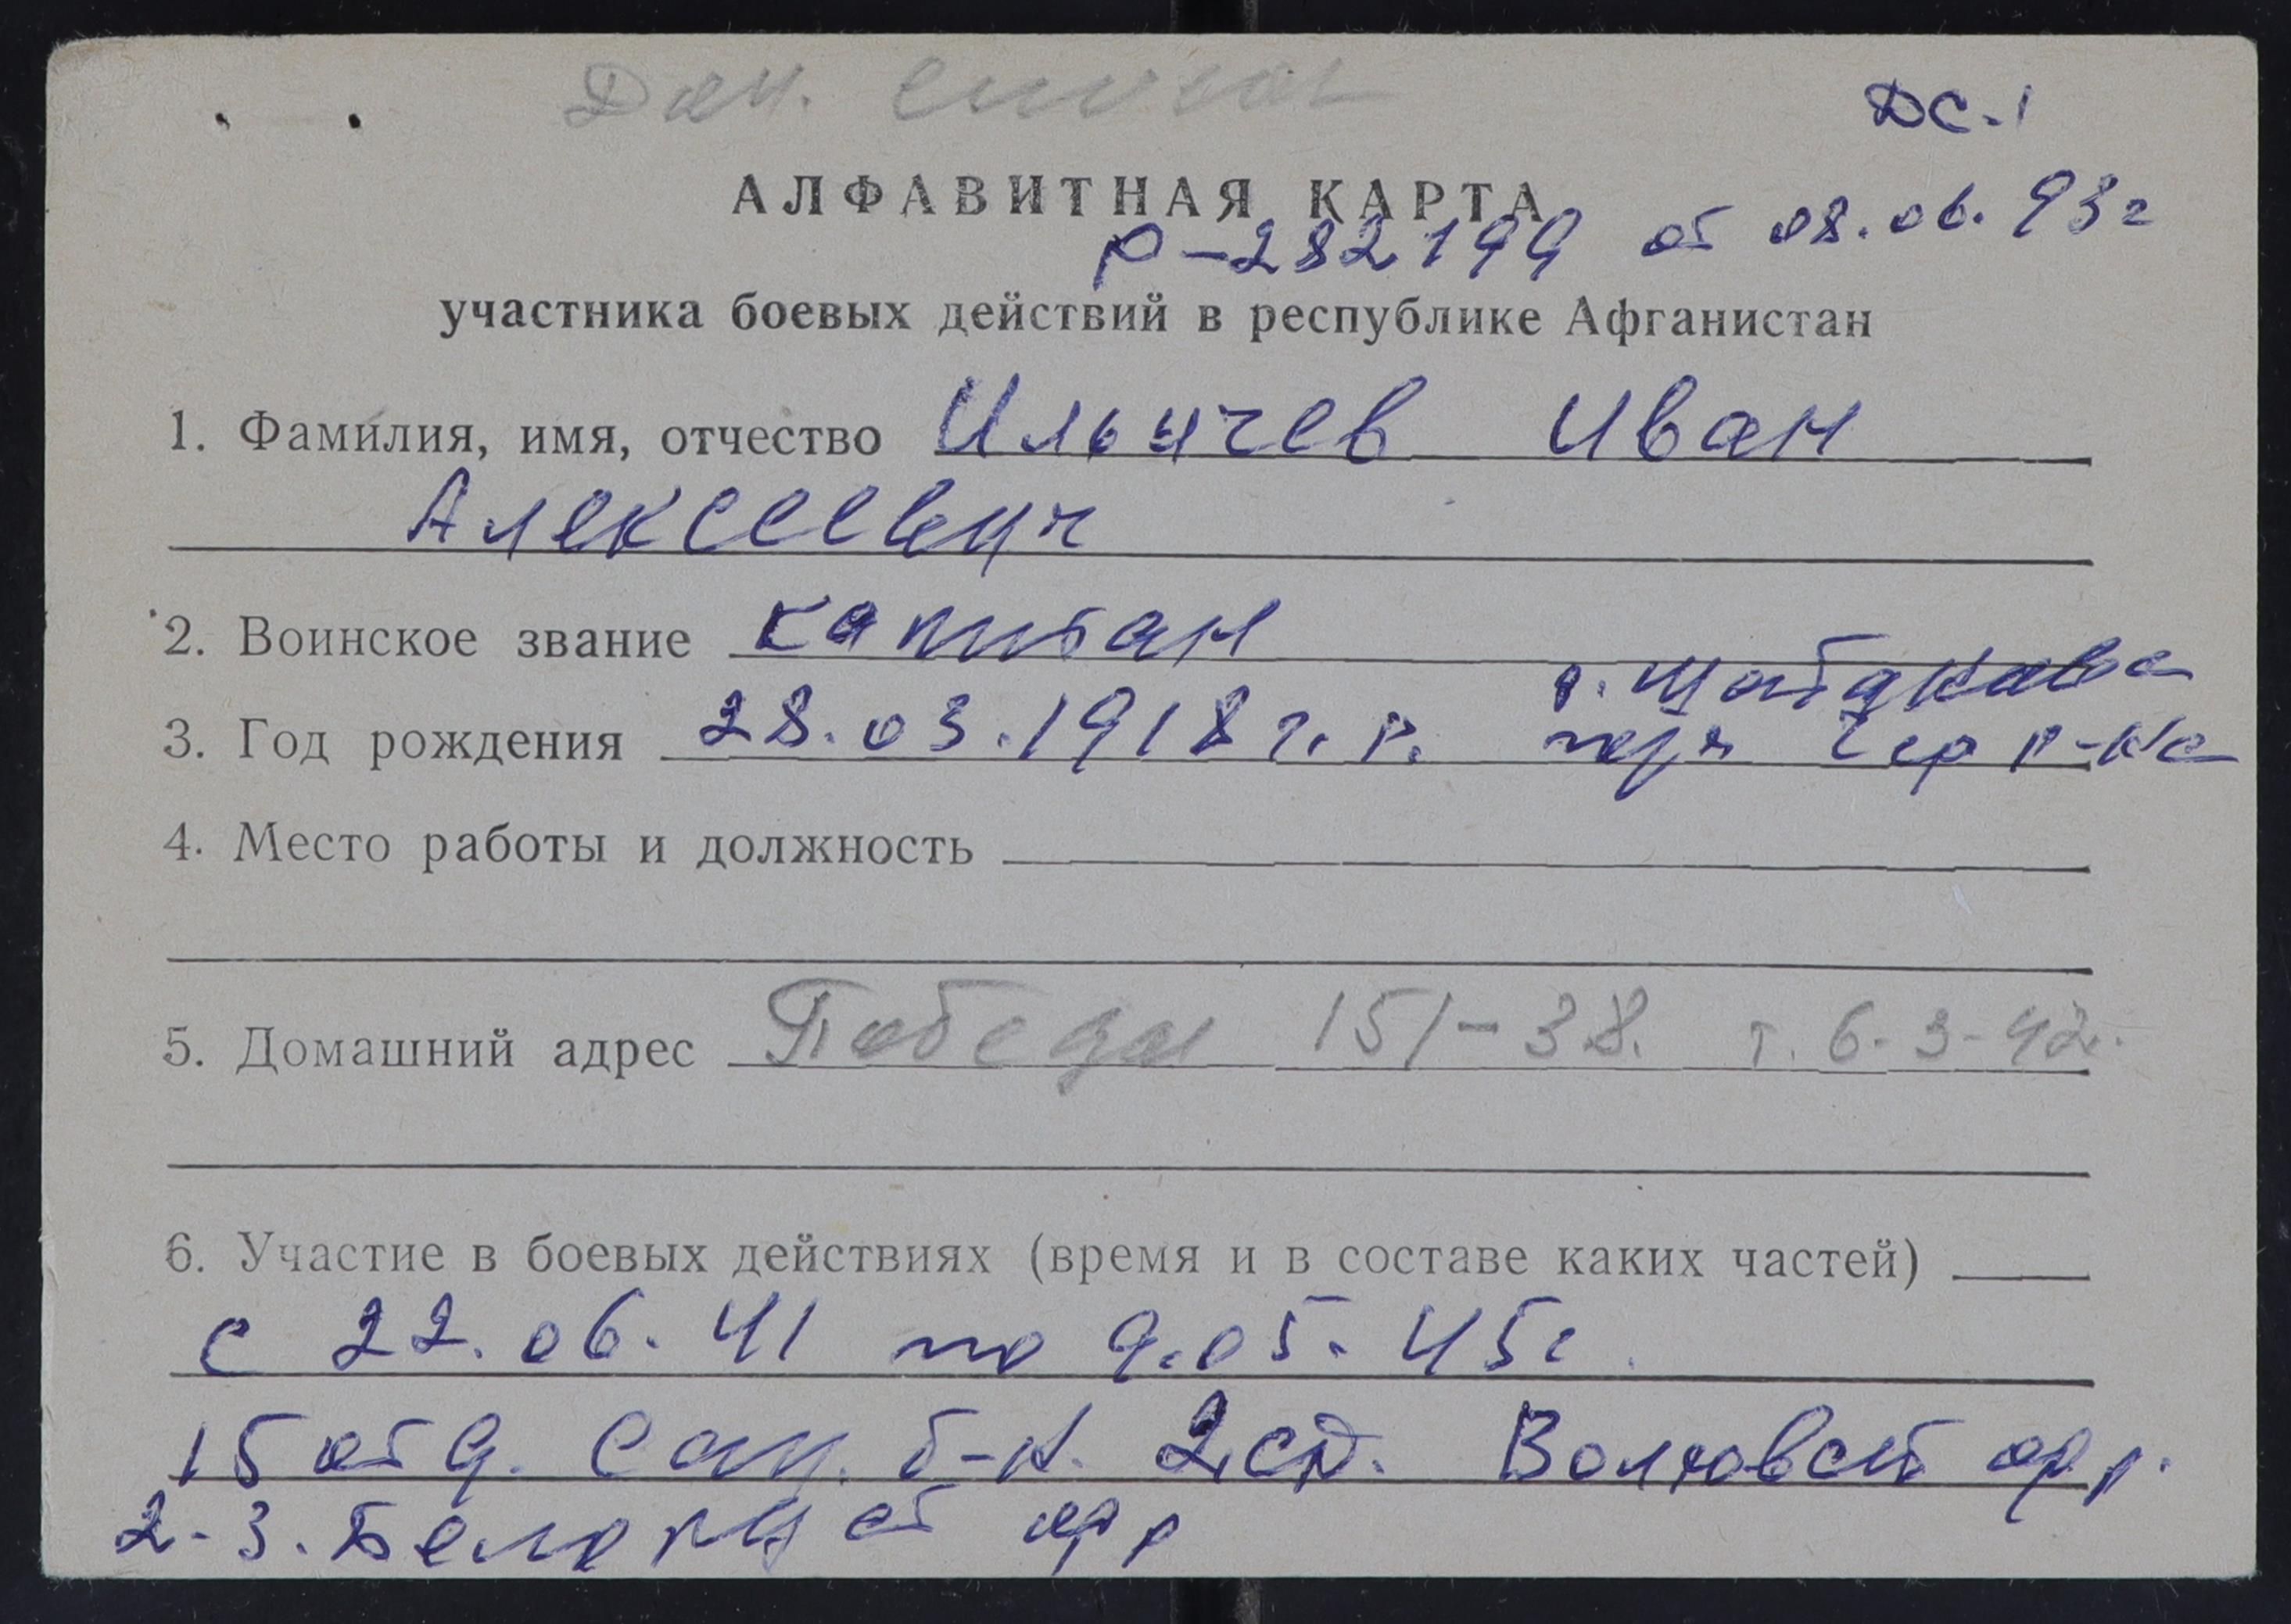 Доп. список
ДС-1
АЛФАВИТНАЯ КАРТА
Р-282199 от 08.06.93г
участника боевых действий в республике Афганистан
1. Фамилия, имя, отчество Ильичев Иван
Алексеевич
2. Воинское звание капитан
3. Год рождения 28.03.1918 г.р.
Чер р-на
4. Место работы и должность
5. Домашний адрес Победы 151-38. т. 6-3-42.
6. Участие в боевых действиях (время и в составе каких частей)
с 22.06.41 по 9.05.45г.
15 отд. сан. б-н. 2 сд. Волховск фр.
2-3. Белорус фр